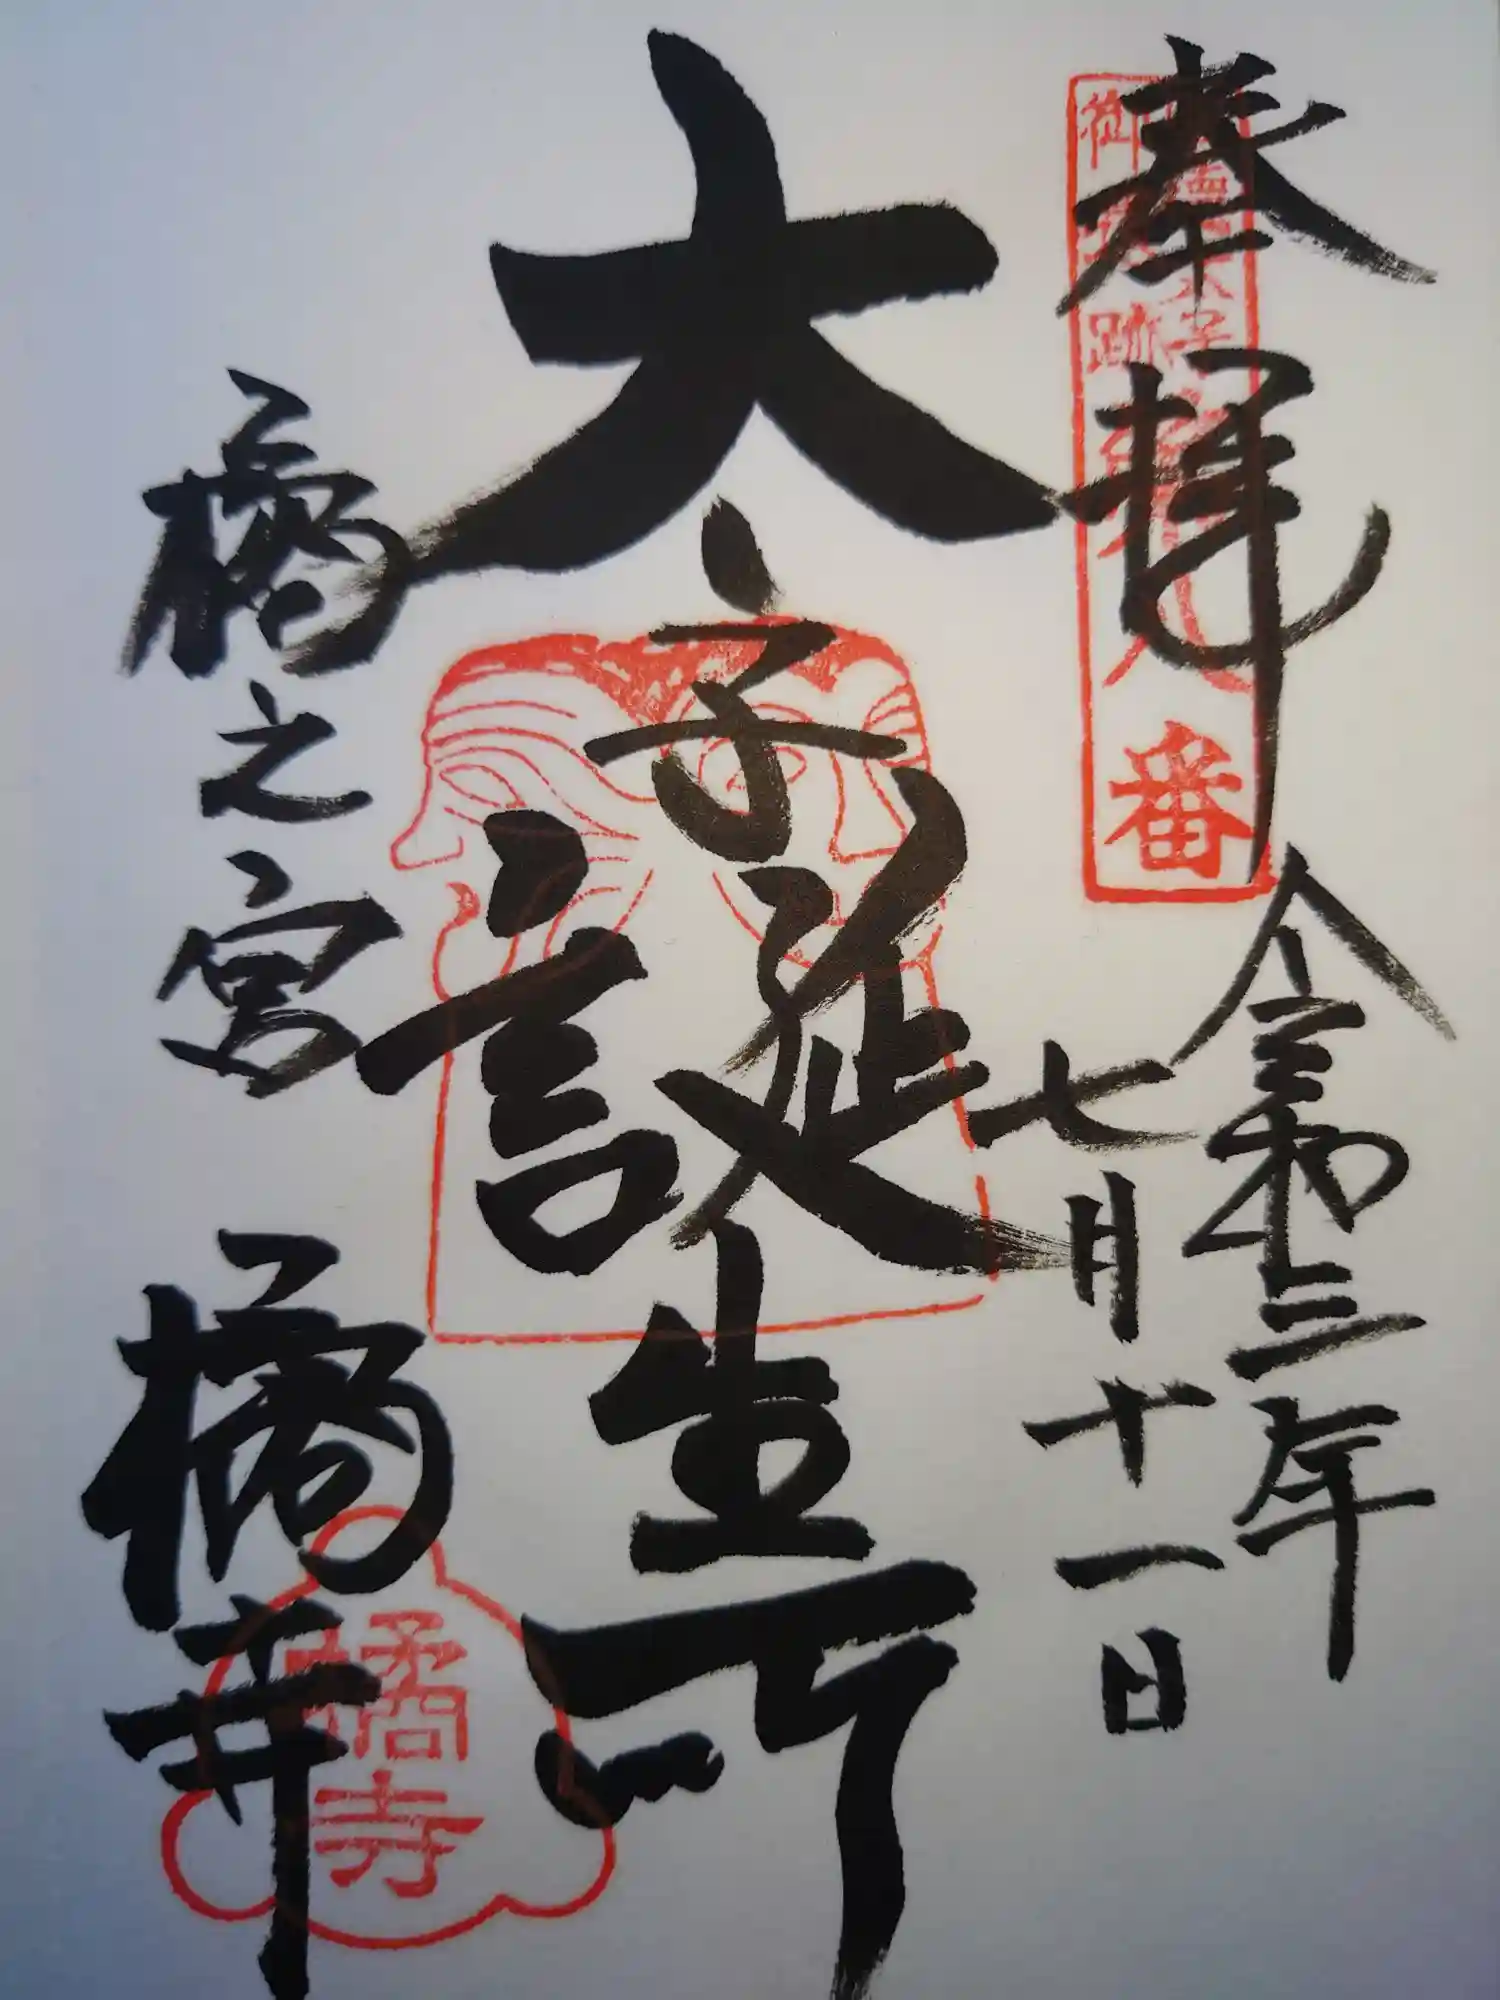 奉拝
聖徳太子
御遺跡
第八番
令和三年
七月十一日
太子誕生所
橘之宮
橘寺
橘寺